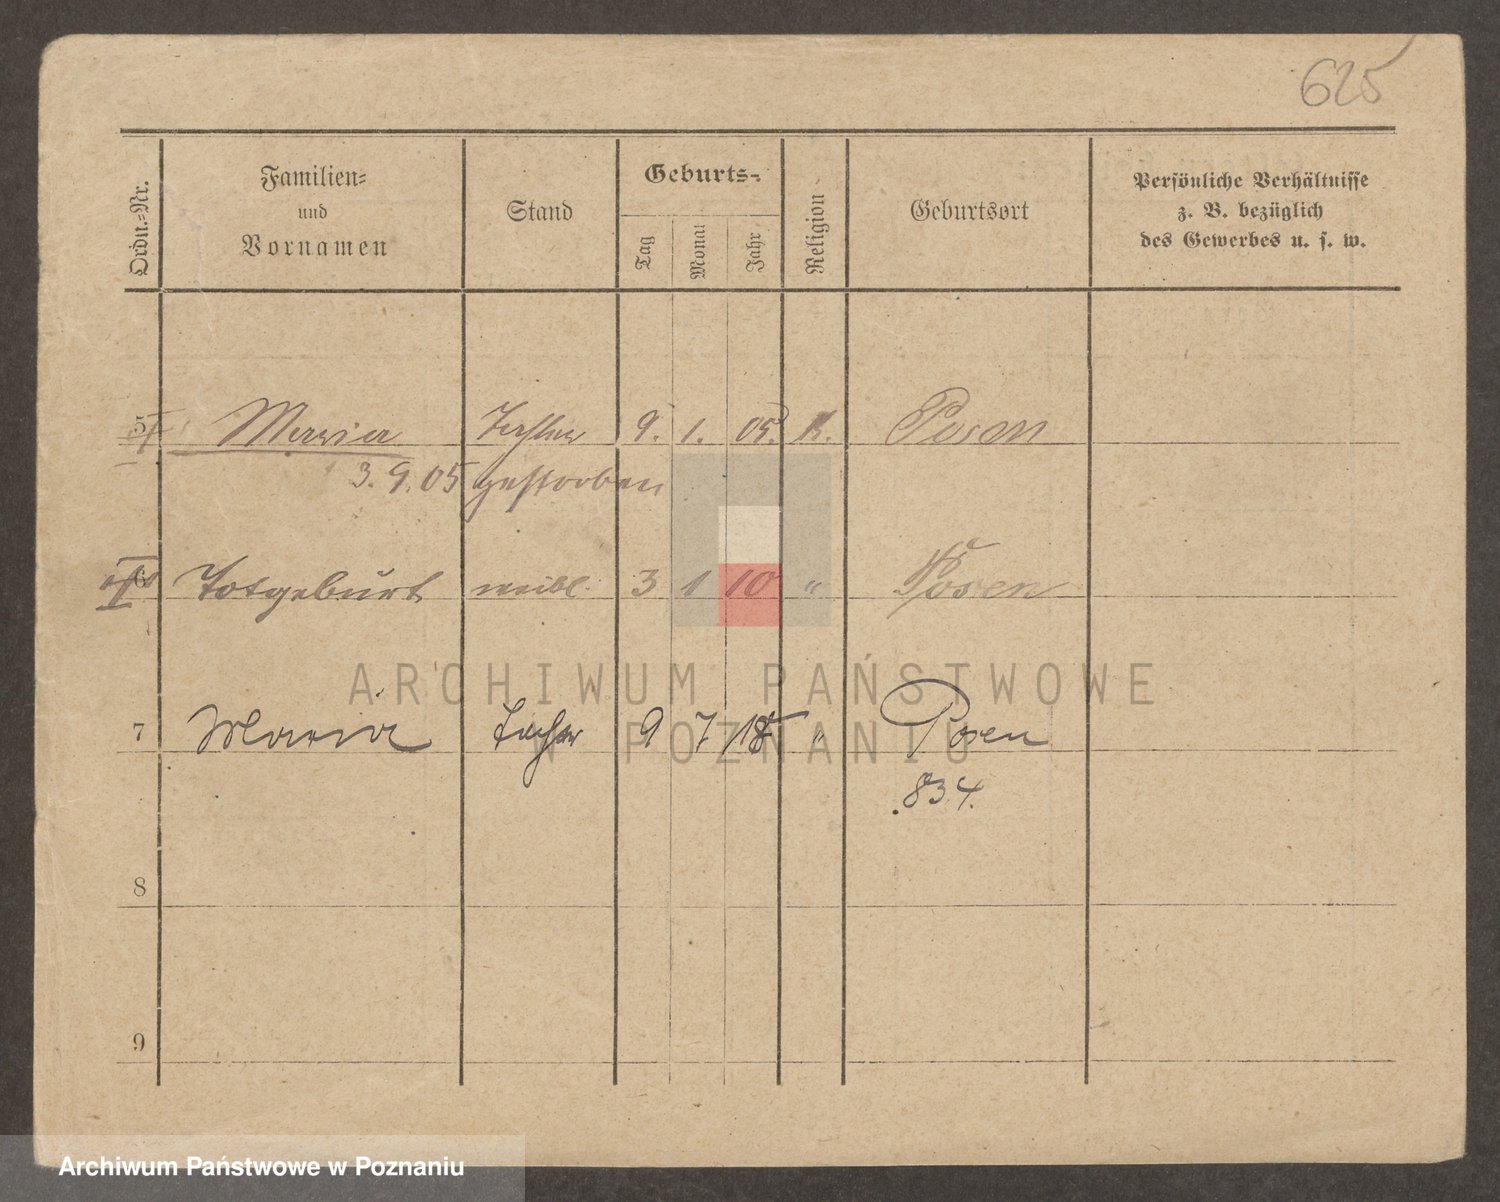 625
Ordn.=Nr.
Familien=
und
Vornamen
Stand
Geburts=
Tag
Monat
Jahr
Religion
Geburtsort
Persönliche Verhältnisse
z. B. bezüglich
des Gewerbes u. s. w.
5 Maria Tochter 9. 1. 05. K. Posen
3. 9. 05 gestorben
6 Totgeburt weibl. 3 1 10 " Posen
7 Maria Tochter 9 7 18 " Posen
834.
8
9
ARCHIWUM PAŃSTWOWE
W POZNANIU
Archiwum Państwowe w Poznaniu